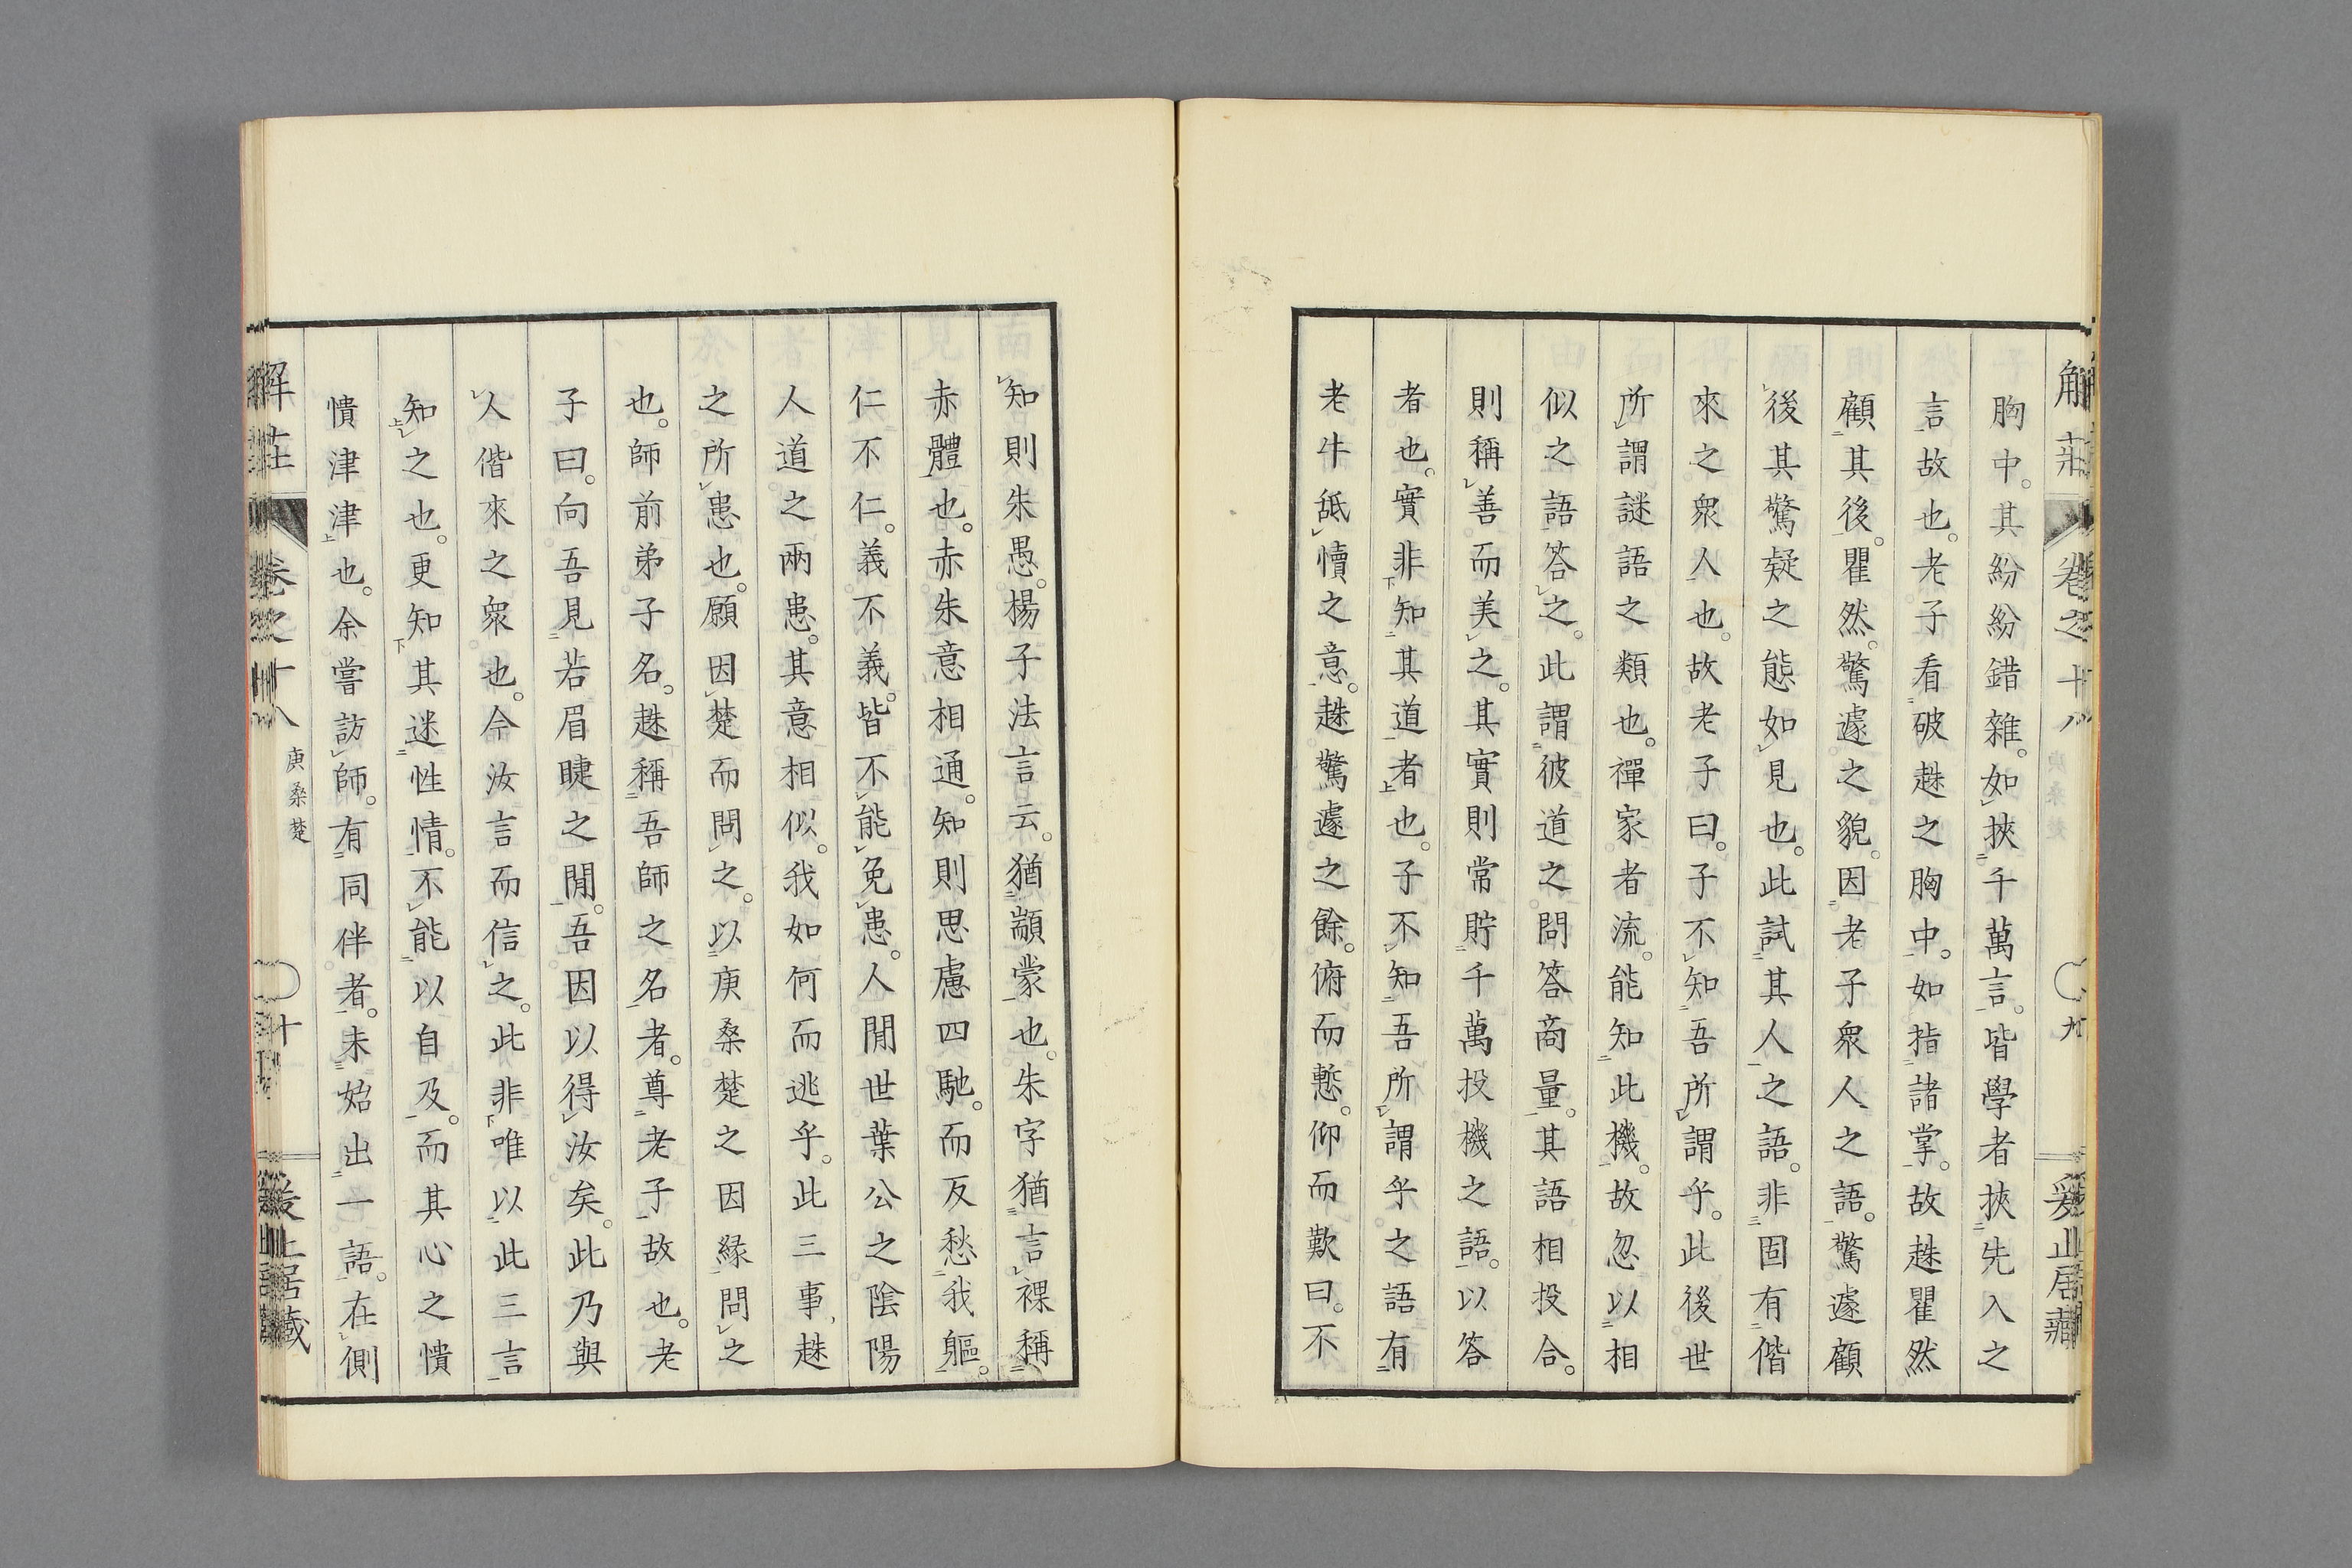 解莊 卷之十八 庚桑楚 九 爰止居藏
胸中。其紛紛錯雜。如挾千萬言。皆學者挾先入之
言故也。老子看破趎之胸中。如指諸掌。故趎瞿然
顧其後。瞿然。驚遽之貌。因老子衆人之語。驚遽顧
後其驚疑之態如見也。此試其人之語。非固有偕
來之衆人也。故老子曰。子不知吾所謂乎。此後世
所謂謎語之類也。禪家者流。能知此機。故忽以相
似之語答之。此謂彼道之問答商量。其語相投合。
則稱善而美之。其實則常貯千萬投機之語。以答
者也。實非知其道者也。子不知吾所謂乎之語有
老牛舐犢之意。趎驚遽之餘。俯而慙。仰而歎曰。不
知則朱愚。楊子法言云。猶顓蒙也。朱字猶言裸稱
赤體也。赤朱意相通。知則思慮四馳。而反愁我軀。
仁不仁。義不義。皆不能免患。人間世葉公之陰陽
人道之兩患。其意相似。我如何而逃乎。此三事、趎
之所患也。願因楚而問之。以庚桑楚之因緣問之
也。師前弟子名。趎稱吾師之名者。尊老子故也。老
子曰。向吾見若眉睫之間。吾因以得汝矣。此乃與
人偕來之衆也。今汝言而信之。此非唯以此三言
知之也。更知其迷性情。不能以自及。而其心之憒
憒津津也。余嘗訪師。有同伴者。未始出一語。在側
解莊 卷之十八 庚桑楚 十 爰止居藏